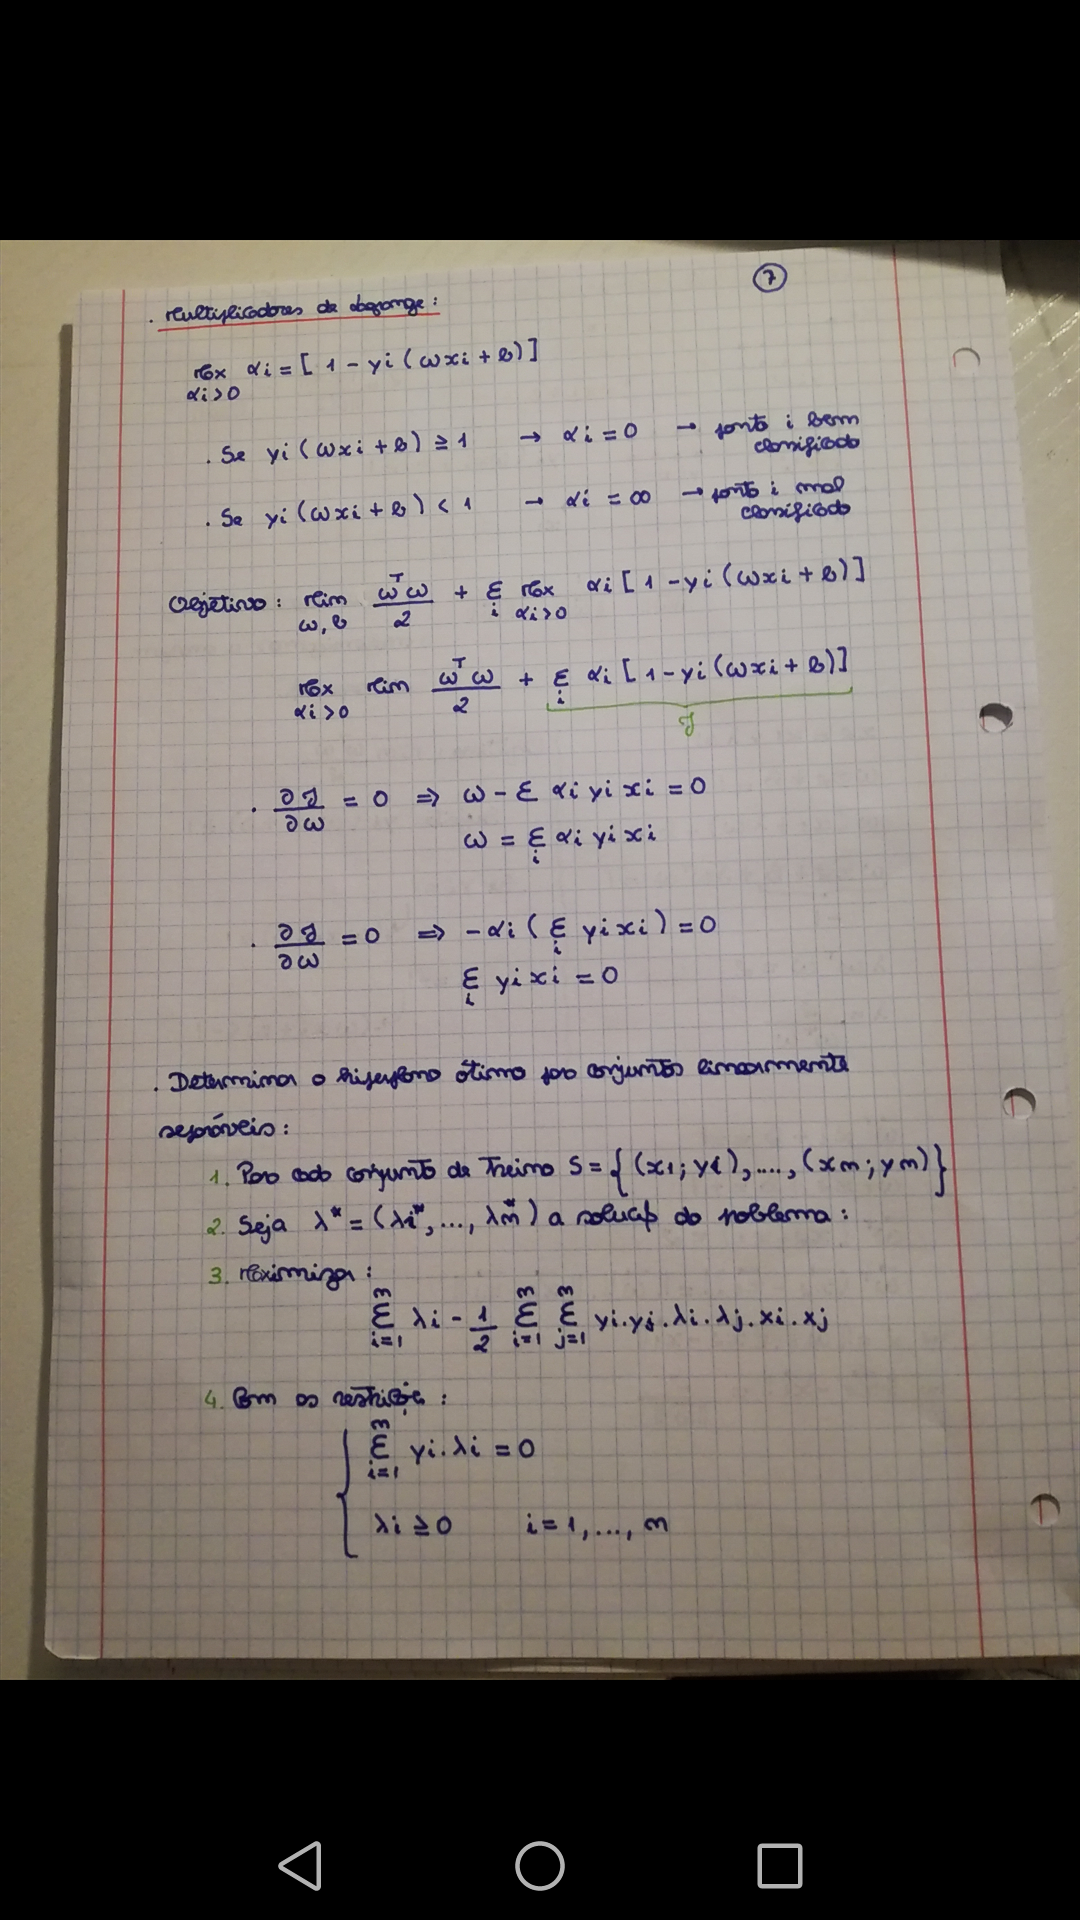 7
. Multiplicadores de Lagrange:
Max αi = [ 1 - yi ( ωxi + b ) ]
αi > 0
. Se yi ( ωxi + b ) ≥ 1 → αi = 0 → ponto i bem
classificado
. Se yi ( ωxi + b ) < 1 → αi = ∞ → ponto i mal
classificado
Objetivo: Min ω^T ω / 2 + Σ Max αi [ 1 - yi ( ωxi + b ) ]
ω, b i αi > 0
Max Min ω^T ω / 2 + Σ αi [ 1 - yi ( ωxi + b ) ]
αi > 0 i
J
. ∂J/∂ω = 0 ⇒ ω - Σ αi yi xi = 0
ω = Σ αi yi xi
i
. ∂J/∂ω = 0 ⇒ - αi ( Σ yi xi ) = 0
i
Σ yi xi = 0
i
. Determinar o hiperplano ótimo para conjuntos linearmente
separáveis:
1. Para cada conjunto de treino S = { (x1; y1), ...., (xm; ym) }
2. Seja λ* = (λ1*, ..., λm*) a solução do problema:
3. Maximizar:
m m m
Σ λi - 1/2 Σ Σ yi . yj . λi . λj . xi . xj
i=1 i=1 j=1
4. Com as restrições:
m
Σ yi . λi = 0
i=1
λi ≥ 0 i = 1, ..., m